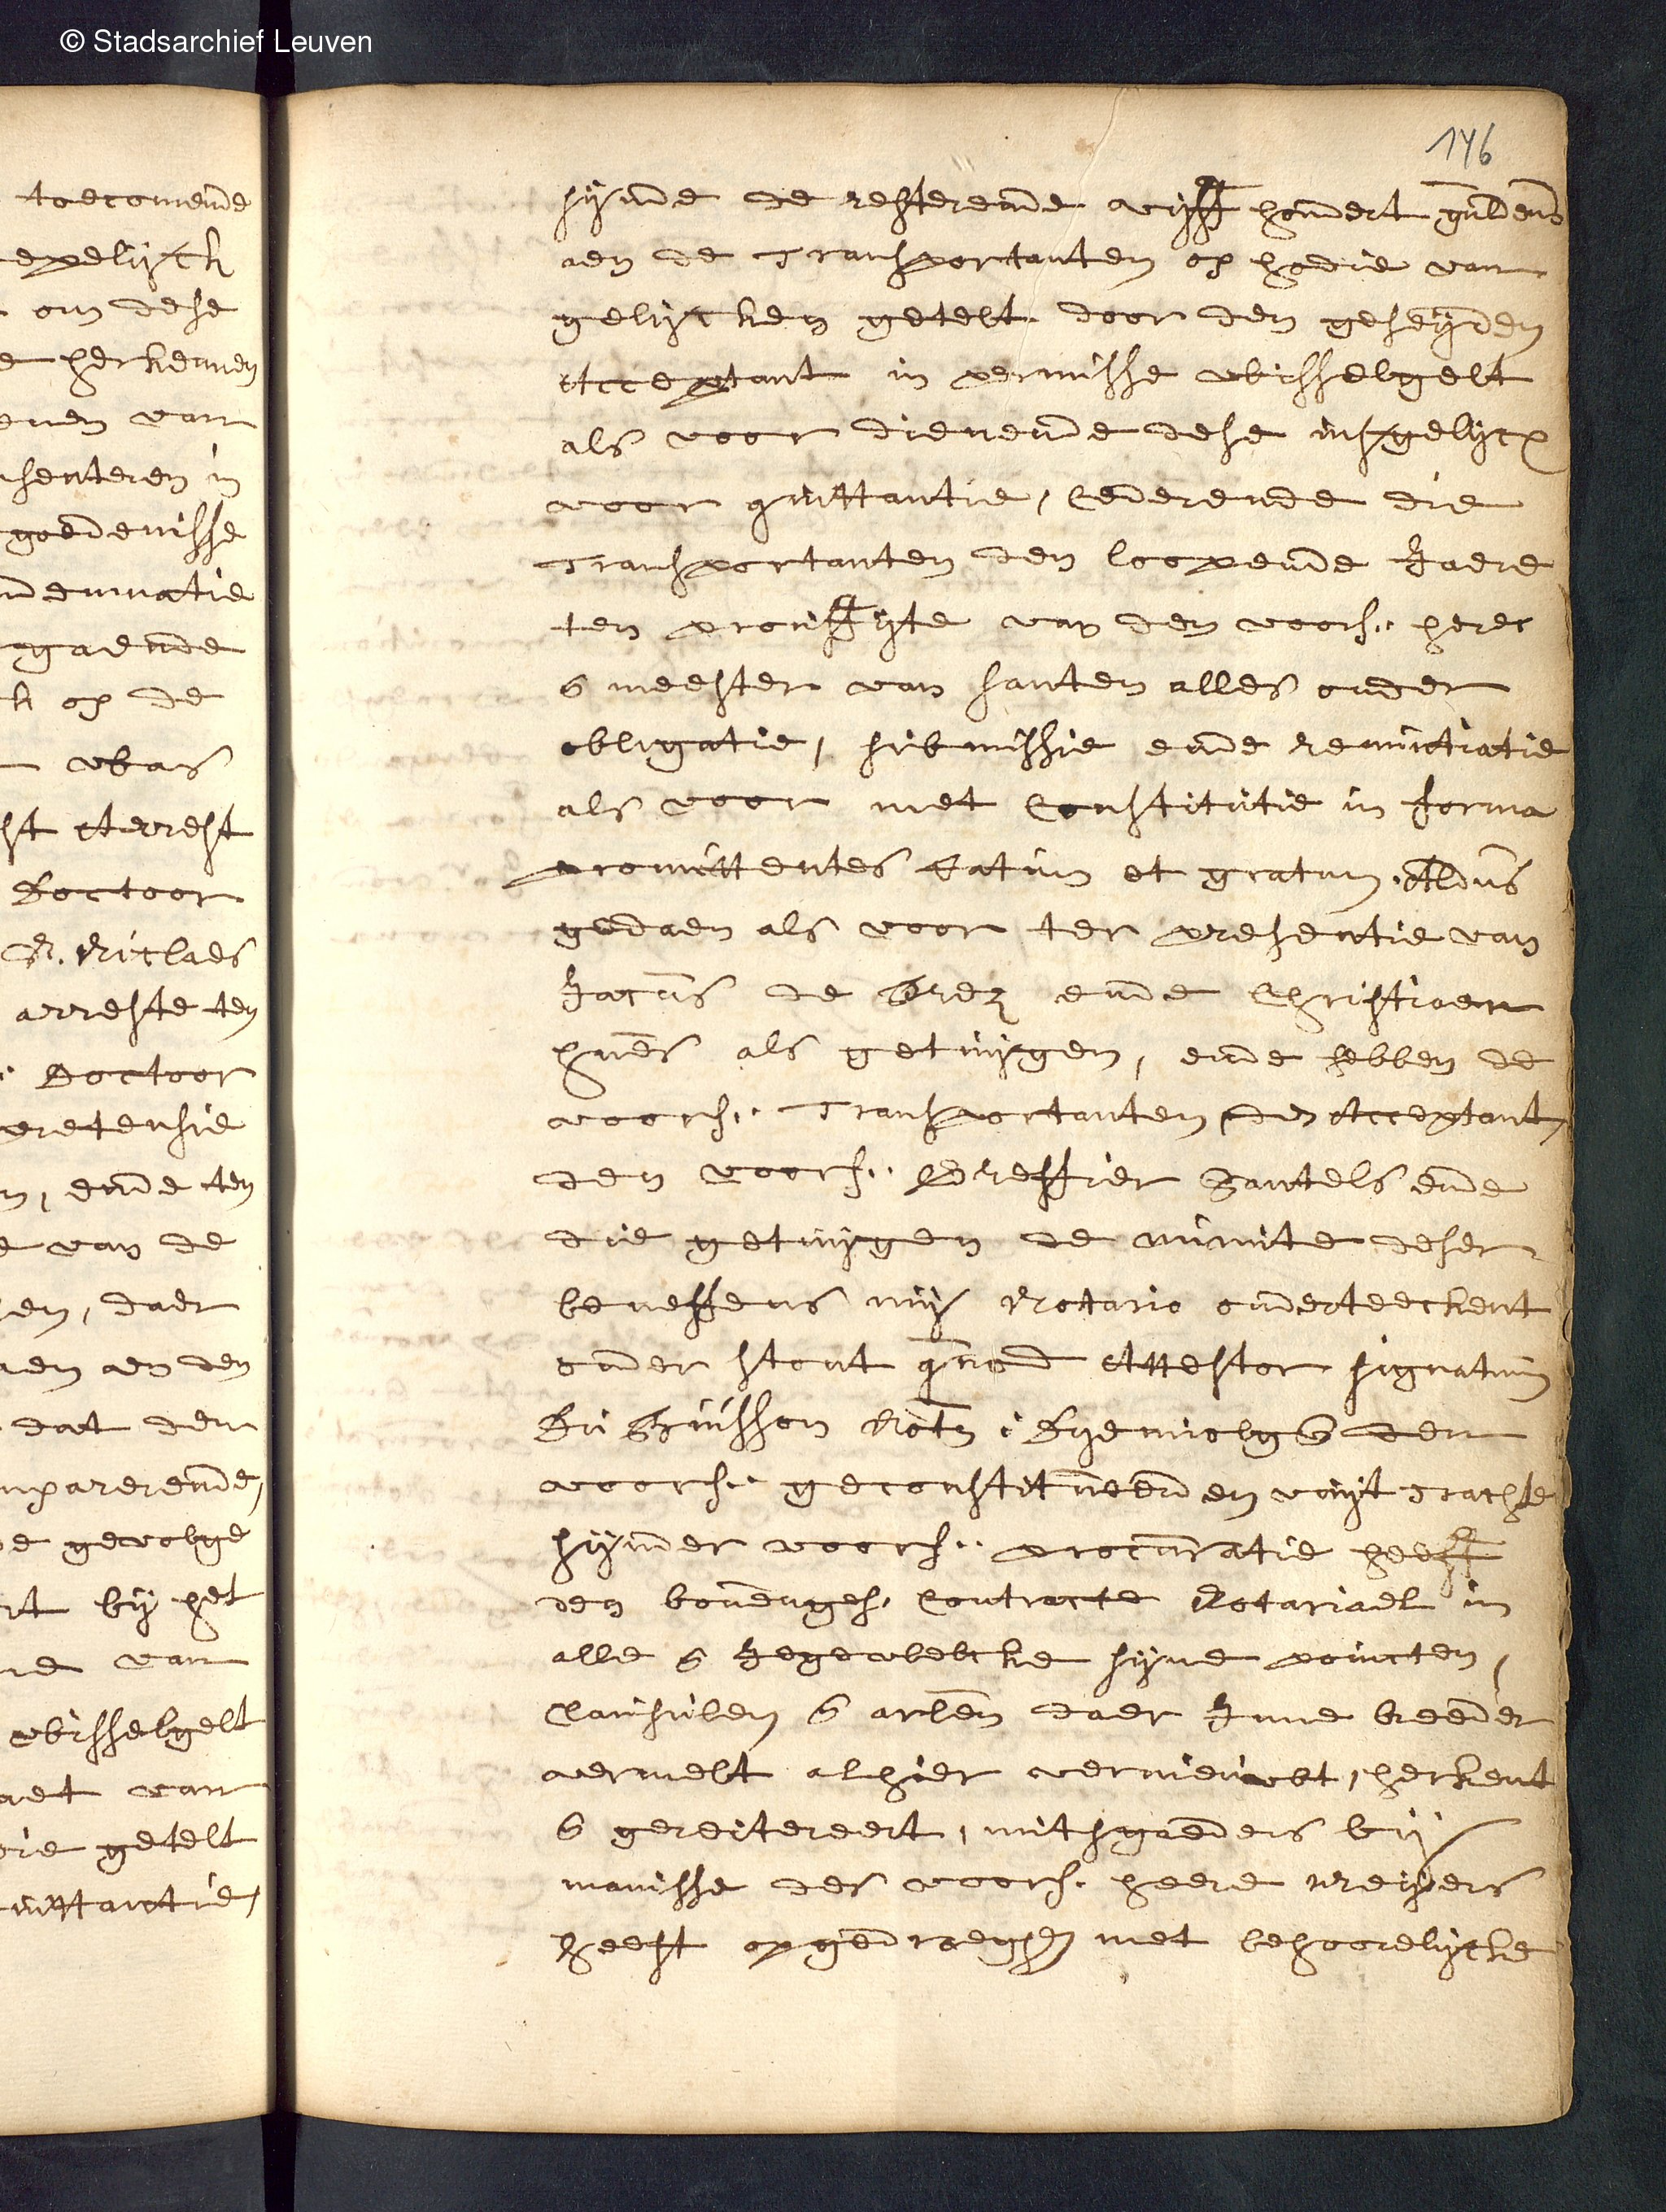 © Stadsarchief Leuven
146
toecomende
epelijck
om dese
herkennen
van
senteren in
goedenisse
demnatie
gaende
k op de
was
st Arrest
Doctoor
R. Niclaes
arreste ten
Doctoor
pretensie
n, ende ten
van de
en, daer
aen den
dat den
mparerende,
e gevolge
rt bij het
van
wisselgelt
aet van
rie getelt
uittantie,
sijnde de resterende vijff hondert guldens
aen de Transportanten op hodie van
gelijcken getelt door den geseijden
Acceptant in permisse wisselgelt
als voor dienende dese insgelijcx
voor quittantie, Cederende die
Transportanten den loopende Jaere
ten prouffijte van den voors.. here
& meester van santen alles onder
obligatie, submissie ende renuntiatie
als voor met Constitutie in forma
promittentes Ratum et gratum. Aldus
gedaen als voor ter presentie van
Jacus de ende Christiaen
hues als getuijgen, ende hebben de
voors.. Transportanten den Acceptant,
den voors.. Greffier Zantels ende
die getuijgen de minute deser
beneffens mij Notario onderteeckent
onder stont quod Attestor signatum
Du Buisson Nots: Dyenvolg& den
voors.. geconstitueerden vuijt crachte
sijnder voors.. procuratie heeft
den bovenges. Contracte Notariael in
alle & Jegewelcke sijne poincten,
Clausulen & arlen daer Inne breeder
vermelt alhier vernieuwt, herkent
& gereitereert, mitsgaeders bij
manisse des voors. heere Meijers
heeft opgedraegen met behoorelijcke